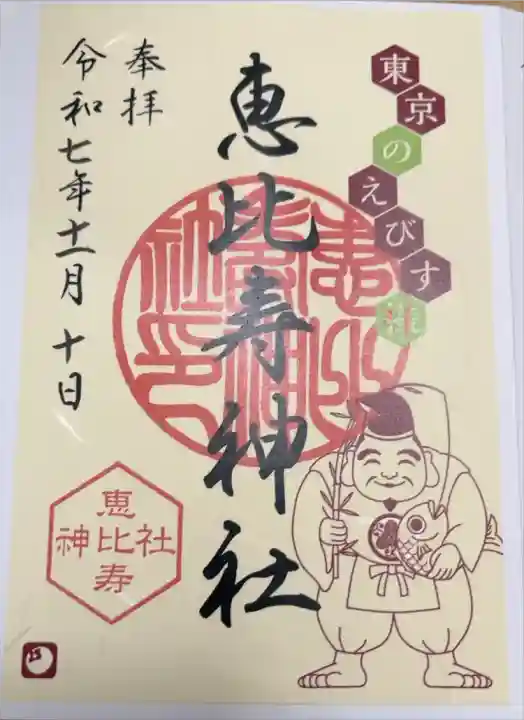 東京のえびす様
恵比寿神社
奉拝
令和七年十一月十日
恵比寿神社